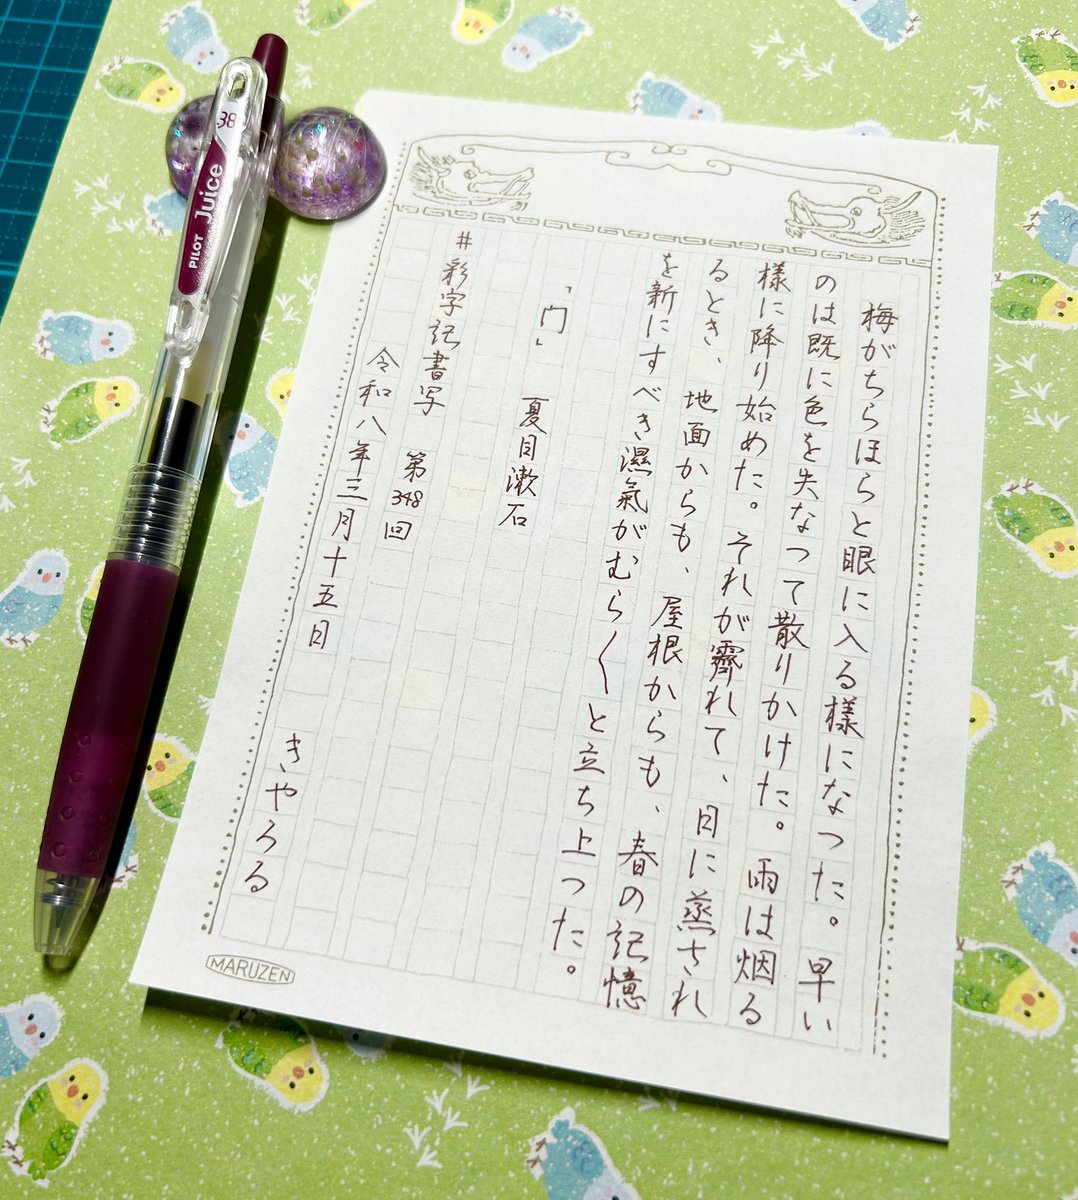 梅がちらほらと眼に入る様になつた。早い
のは既に色を失なつて散りかけた。雨は烟る
様に降り始めた。それが霽れて、日に蒸され
るとき、地面からも、屋根からも、春の記憶
を新にすべき濕氣がむら〳〵と立ち上つた。
「門」 夏目漱石
#彩字記書写 第348回
令和八年三月十五日
きやろる
MARUZEN
PILOT Juice
38